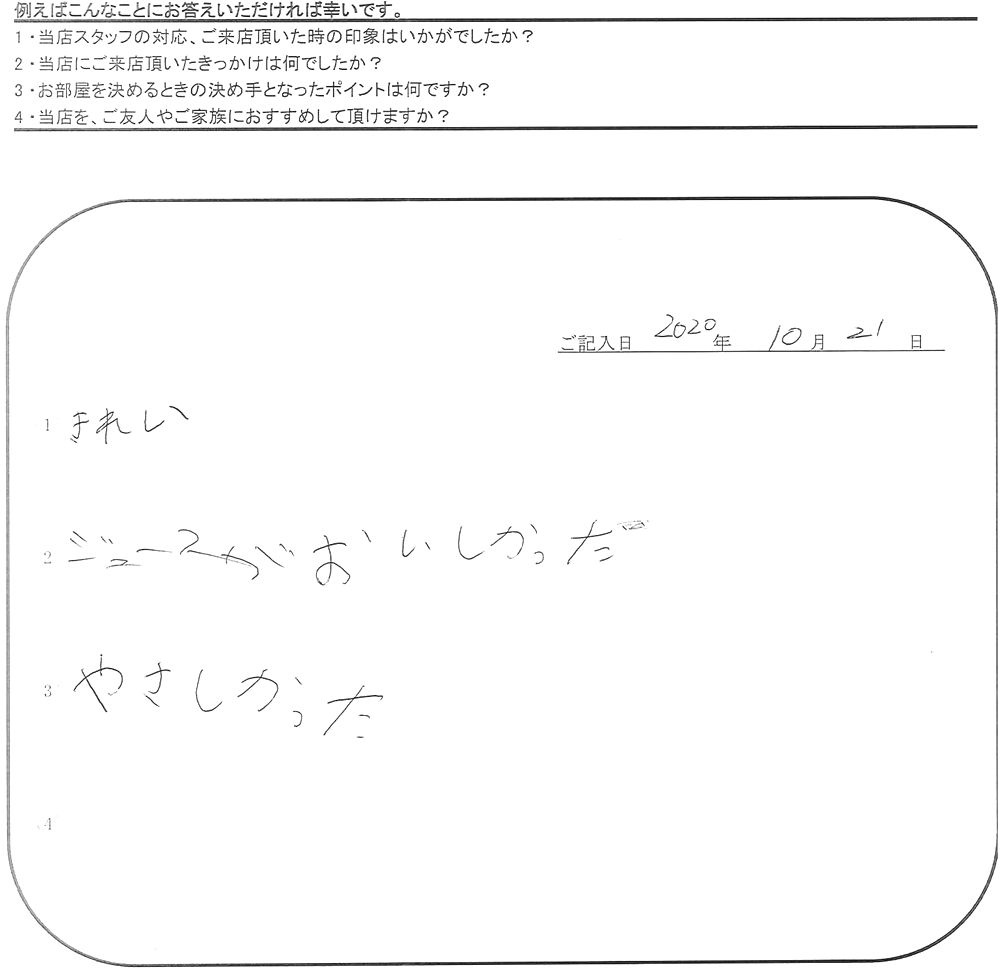 例えばこんなことにお答えいただければ幸いです。
1・当店スタッフの対応、ご来店頂いた時の印象はいかがでしたか？
2・当店にご来店頂いたきっかけは何でしたか？
3・お部屋を決めるときの決め手となったポイントは何ですか？
4・当店を、ご友人やご家族におすすめして頂けますか？
ご記入日 2020年 10月 21日
1 きれい
2 ジュースがおいしかった
3 やさしかった
4